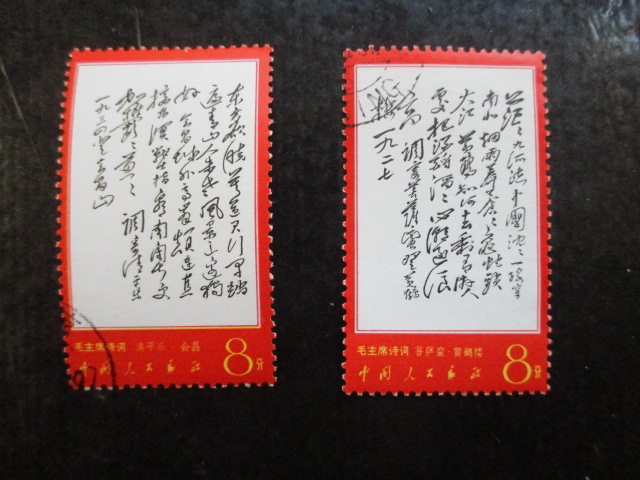 东方欲晓莫道君行早踏
遍青山人未老风景这边独
好 会昌城外高峰颠连直
接东溟战士指看南粤更
加郁郁葱葱 调寄清平乐
一九三四登会昌山
毛主席诗词 清平乐·会昌
中国人民邮政
8分
茫茫九派流中国沉沉一线穿
南北烟雨莽苍苍龟蛇锁
大江 黄鹤知何去剩有游人
处把酒酹滔滔心潮逐浪
高 调寄菩萨蛮登黄鹤
楼 一九二七
毛主席诗词 菩萨蛮·黄鹤楼
中国人民邮政
8分